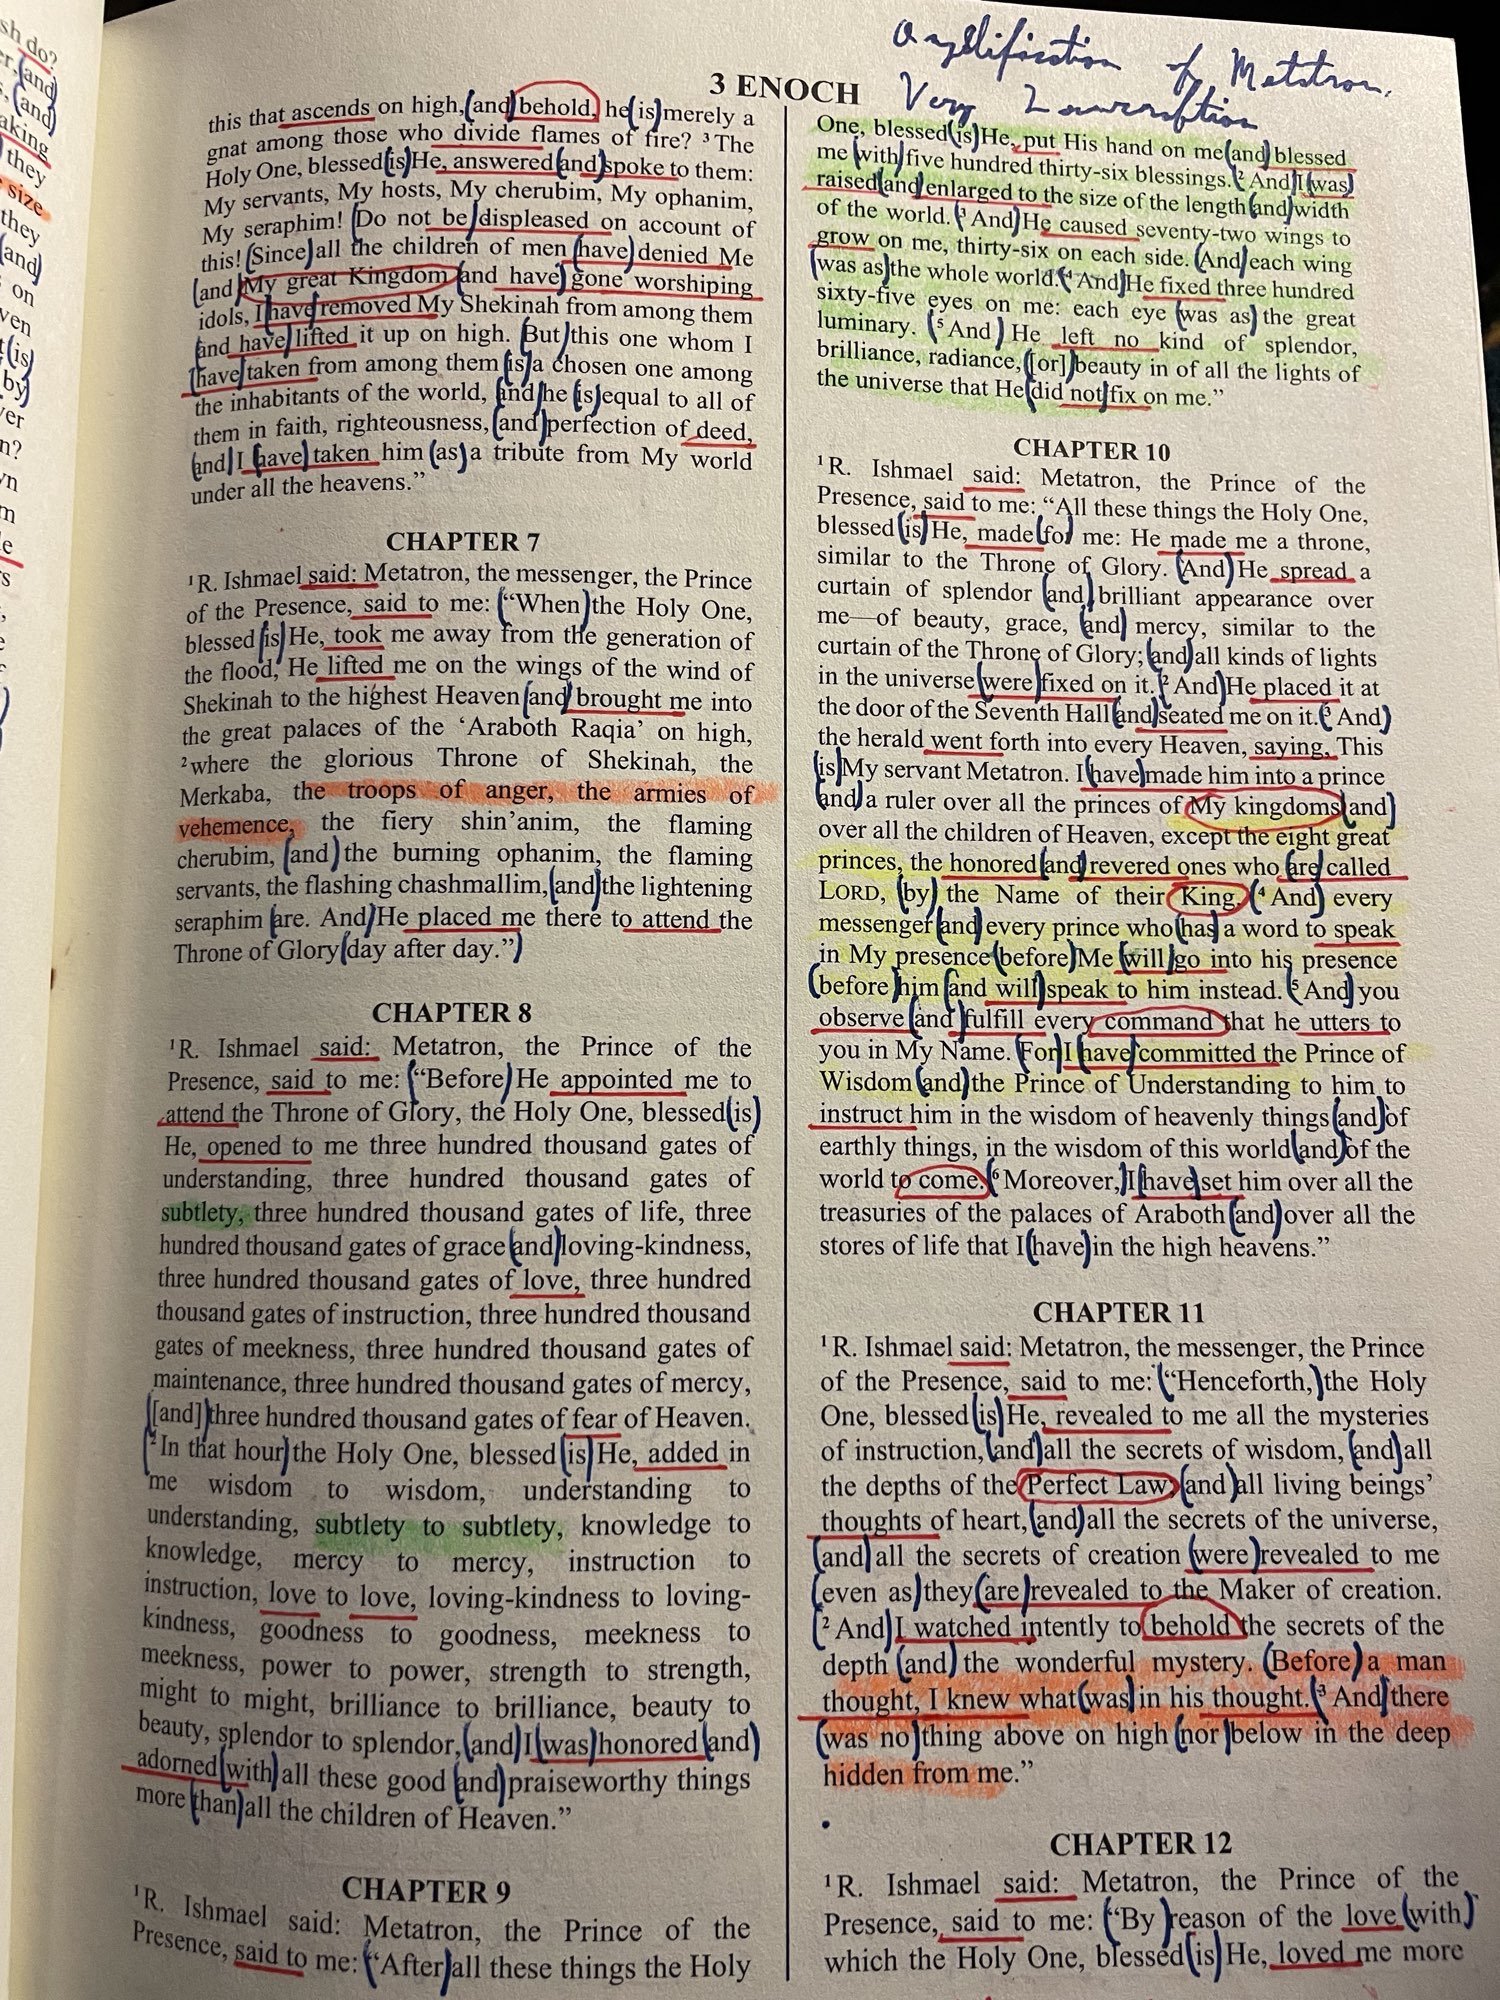 3 ENOCH
of Metatron.
Very
this that ascends on high, (and) behold, he (is) merely a
gnat among those who divide flames of fire? ³The
Holy One, blessed (is) He, answered (and) spoke to them:
My servants, My hosts, My cherubim, My ophanim,
My seraphim! (Do not be) displeased on account of
this! (Since) all the children of men (have) denied Me
(and) My great Kingdom (and have) gone worshiping
idols, I (have) removed My Shekinah from among them
(and have) lifted it up on high. (But) this one whom I
(have) taken from among them (is) a chosen one among
the inhabitants of the world, (and) he (is) equal to all of
them in faith, righteousness, (and) perfection of deed,
(and) I (have) taken him (as) a tribute from My world
under all the heavens.”
CHAPTER 7
¹R. Ishmael said: Metatron, the messenger, the Prince
of the Presence, said to me: (“When) the Holy One,
blessed (is) He, took me away from the generation of
the flood, He lifted me on the wings of the wind of
Shekinah to the highest Heaven (and) brought me into
the great palaces of the ‘Araboth Raqia’ on high,
²where the glorious Throne of Shekinah, the
Merkaba, the troops of anger, the armies of
vehemence, the fiery shin’anim, the flaming
cherubim, (and) the burning ophanim, the flaming
servants, the flashing chashmallim, (and) the lightening
seraphim (are. And) He placed me there to attend the
Throne of Glory (day after day.”)
CHAPTER 8
¹R. Ishmael said: Metatron, the Prince of the
Presence, said to me: (“Before) He appointed me to
attend the Throne of Glory, the Holy One, blessed (is)
He, opened to me three hundred thousand gates of
understanding, three hundred thousand gates of
subtlety, three hundred thousand gates of life, three
hundred thousand gates of grace (and) loving-kindness,
three hundred thousand gates of love, three hundred
thousand gates of instruction, three hundred thousand
gates of meekness, three hundred thousand gates of
maintenance, three hundred thousand gates of mercy,
([and]) three hundred thousand gates of fear of Heaven.
(²In that hour) the Holy One, blessed (is) He, added in
me wisdom to wisdom, understanding to
understanding, subtlety to subtlety, knowledge to
knowledge, mercy to mercy, instruction to
instruction, love to love, loving-kindness to loving-
kindness, goodness to goodness, meekness to
meekness, power to power, strength to strength,
might to might, brilliance to brilliance, beauty to
beauty, splendor to splendor, (and) I (was) honored (and)
adorned (with) all these good (and) praiseworthy things
more (than) all the children of Heaven.”
CHAPTER 9
¹R. Ishmael said: Metatron, the Prince of the
Presence, said to me: (“After) all these things the Holy
One, blessed (is) He, put His hand on me (and) blessed
me (with) five hundred thirty-six blessings. (² And) I (was)
raised (and) enlarged to the size of the length (and) width
of the world. (³ And) He caused seventy-two wings to
grow on me, thirty-six on each side. (And) each wing
(was as) the whole world. (⁴ And) He fixed three hundred
sixty-five eyes on me: each eye (was as) the great
luminary. (⁵ And ) He left no kind of splendor,
brilliance, radiance, ([or]) beauty in of all the lights of
the universe that He (did not) fix on me.”
CHAPTER 10
¹R. Ishmael said: Metatron, the Prince of the
Presence, said to me: “All these things the Holy One,
blessed (is) He, made (for) me: He made me a throne,
similar to the Throne of Glory. (And) He spread a
curtain of splendor (and) brilliant appearance over
me—of beauty, grace, (and) mercy, similar to the
curtain of the Throne of Glory; (and) all kinds of lights
in the universe (were) fixed on it. (² And) He placed it at
the door of the Seventh Hall (and) seated me on it. (³ And)
the herald went forth into every Heaven, saying, This
(is) My servant Metatron. I (have) made him into a prince
(and) a ruler over all the princes of My kingdoms (and)
over all the children of Heaven, except the eight great
princes, the honored (and) revered ones who (are) called
LORD, (by) the Name of their King. (⁴ And) every
messenger (and) every prince who (has) a word to speak
in My presence (before) Me (will) go into his presence
(before) him (and will) speak to him instead. (⁵ And) you
observe (and) fulfill every command that he utters to
you in My Name. (For) I (have) committed the Prince of
Wisdom (and) the Prince of Understanding to him to
instruct him in the wisdom of heavenly things (and) of
earthly things, in the wisdom of this world (and) of the
world to come. (⁶ Moreover,) I (have) set him over all the
treasuries of the palaces of Araboth (and) over all the
stores of life that I (have) in the high heavens.”
CHAPTER 11
¹R. Ishmael said: Metatron, the messenger, the Prince
of the Presence, said to me: (“Henceforth,) the Holy
One, blessed (is) He, revealed to me all the mysteries
of instruction, (and) all the secrets of wisdom, (and) all
the depths of the Perfect Law; (and) all living beings’
thoughts of heart, (and) all the secrets of the universe,
(and) all the secrets of creation (were) revealed to me
(even as) they (are) revealed to the Maker of creation.
(² And) I watched intently to behold the secrets of the
depth (and) the wonderful mystery. (Before) a man
thought, I knew what (was) in his thought. (³ And) there
(was no) thing above on high (nor) below in the deep
hidden from me.”
CHAPTER 12
¹R. Ishmael said: Metatron, the Prince of the
Presence, said to me: (“By) reason of the love (with)
which the Holy One, blessed (is) He, loved me more